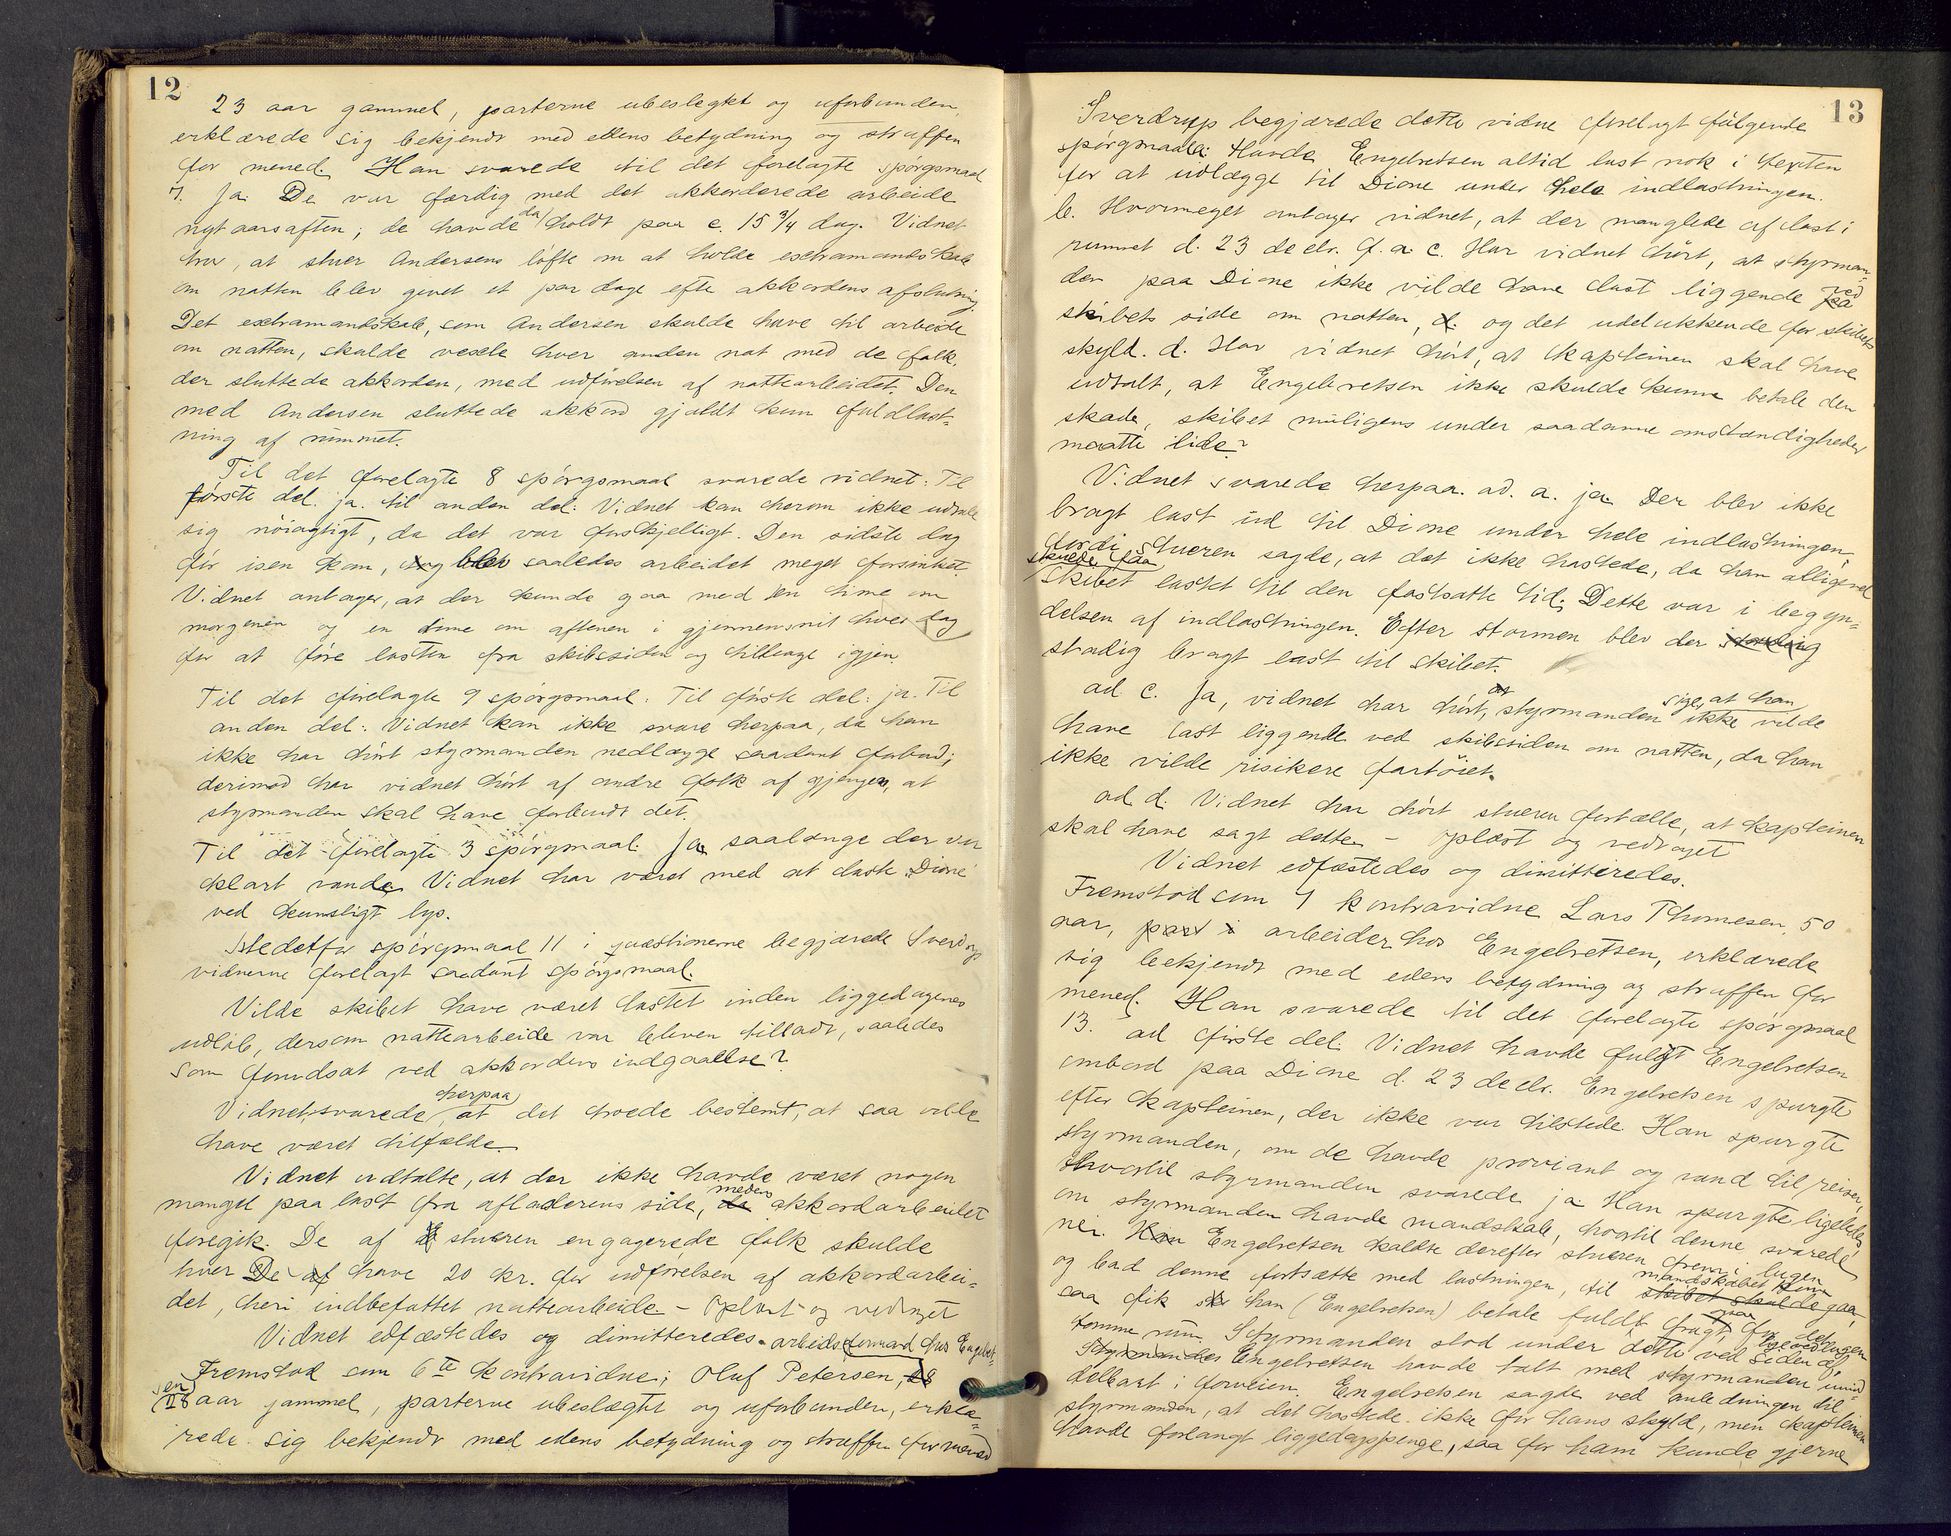 12
23 aar gammel, parterne ubeslegtet og uforbunden,
erklærede sig bekjendt med edens betydning og straffen
for mened. Han svarede til det forelagte spørgsmaal
7. Ja. De var færdig med det akkorderede arbeide
nytaarsaften; de havde da holdt paa c. 15 3/4 dag. Vidnet
hør, at stuer Andersens løfte om at holde extramandskab
om natten blev givet et par dage efter akkordens afslutning.
Det extramandskab, som Andersen skulde have til arbeide
om natten, skulde vexle hver anden nat med de folk,
der sluttede akkorden, med udførelsen af nattearbeidet. Den
med Andersen sluttede akkord gjaldt kun fuldlast-
ning af rummet.
Til det forelagte 8 spørgsmaal svarede vidnet: Til
første del. ja. til anden del: Vidnet kan herom ikke udtale
sig nöiagtigt, da det var forskjelligt. Den sidste dag
før isen kom, blev saaledes arbeidet meget forsinket.
Vidnet antager, at der kunde gaa med en time om
morgenen og en time om aftenen i gjennemsnit hver dag
for at føre lasten fra skibssiden og tilbage igjen.
Til det forelagte 9 spørgsmaal: Til første del: ja. Til
anden del: Vidnet kan ikke svare herpaa, da han
ikke har hørt styrmanden nedlægge saadant forbud;
derimod har vidnet hørt af andre folk af gjengen, at
styrmanden skal have forbudt det.
Til det forelagte 3 spørgsmaal. Ja saalænge der var
klart vande. Vidnet har været med at laste "Dione"
ved kunstigt lys.
Istedetfor spørgsmaal 11 i quæstionerne begjærede Sverdrup
vidnerne forelagt saadant spørgsmaal.
Vilde skibet have været lastet inden liggedagenes
udløb, dersom nattearbeide var bleven tilladt, saaledes
som forudsat ved akkordens indgaaelse?
Vidnet svarede herpaa, at det troede bestemt, at saa vilde
have været tilfælde.
Vidnet udtalte, at der ikke havde været nogen
mangel paa last fra afladerens side, medens akkordarbeidet
foregik. De af stueren engagerede folk skulde
hver have 20 kr. for udførelsen af akkordarbei-
det, heri indbefattet nattearbeide - Oplæst og vedtaget
Vidnet edfæstedes og dimitteredes. arbeidsformand hos Engebret-
Fremstod som 6te kontravidne; Oluf Petersen,
sen
28 aar gammel, parterne ubeslægtet og uforbunden, erklæ-
rede sig bekjendt med edens betydning og straffen for mened
13
Sverdrup begjærede dette vidne forelagt følgende
spørgsmaal: a. Havde Engebretsen altid last nok i
for at udlægge til Dione under hele indlastningen.
b. Hvormeget antager vidnet, at der manglede af last i
rummet d. 23 decbr. f. a. c. Har vidnet hørt, at styrman-
den paa Dione ikke vilde have last liggende ved
skibets side om natten, og det udelukkende for skibets
skyld. d. Har vidnet hørt, at kapteinen skal have
udtalt, at Engebretsen ikke skulde kunne betale den
skade, skibet muligens under saadanne omstændigheder
maatte lide?
Vidnet svarede herpaa. ad. a. ja Der blev ikke
bragt last ud til Dione under hele indlastningen,
fordi stueren sagde, at det ikke hastede, da han alligevel
skulde faa
skibet lastet til den fastsatte tid; Dette var i begyn-
delsen af indlastningen. Efter stormen blev der
stadig bragt last til skibet.
ad. c. Ja, vidnet har hørt, at styrmanden sige, at han ikke vilde
have last liggende ved skibssiden om natten, da han
ikke vilde risikere fartöiet.
ad. d. Vidnet har hørt stueren fortælle, at kapteinen
skal have sagt dette - Oplæst og vedtaget
Vidnet edfæstedes og dimitteredes.
Fremstod som 7 kontravidne Lars Thomesen, 50
aar, arbeider hos Engebretsen, erklærede
sig bekjendt med edens betydning og straffen for
mened. Han svarede til det forelagte spørgsmaal
13. ad første del: Vidnet havde fulgt Engebretsen
ombord paa Dione d. 23 decbr. Engebretsen spurgte
efter kapteinen, der ikke var tilstede. Han spurgte
styrmanden, om de havde proviant og vand til reisen,
hvortil styrmanden svarede ja. Han spurgte ligeledes
om styrmanden havde mandskab, hvortil denne svarede
nei. Engebretsen kaldte derefter stueren frem i lugen
og bad denne fortsætte med lastningen, til mandskabet kom
saa fik han (Engebretsen) betale fuld fragt for det
tomme rum. Styrmanden stod under dette ved siden af
lugen
Engebretsen havde talt med styrmanden umid-
delbart i forveien. Engebretsen sagde ved anledningen til
styrmanden, at det hastede ikke for hans skyld, men kapteinen
havde forlangt liggedagspenge, saa for ham kunde gjerne